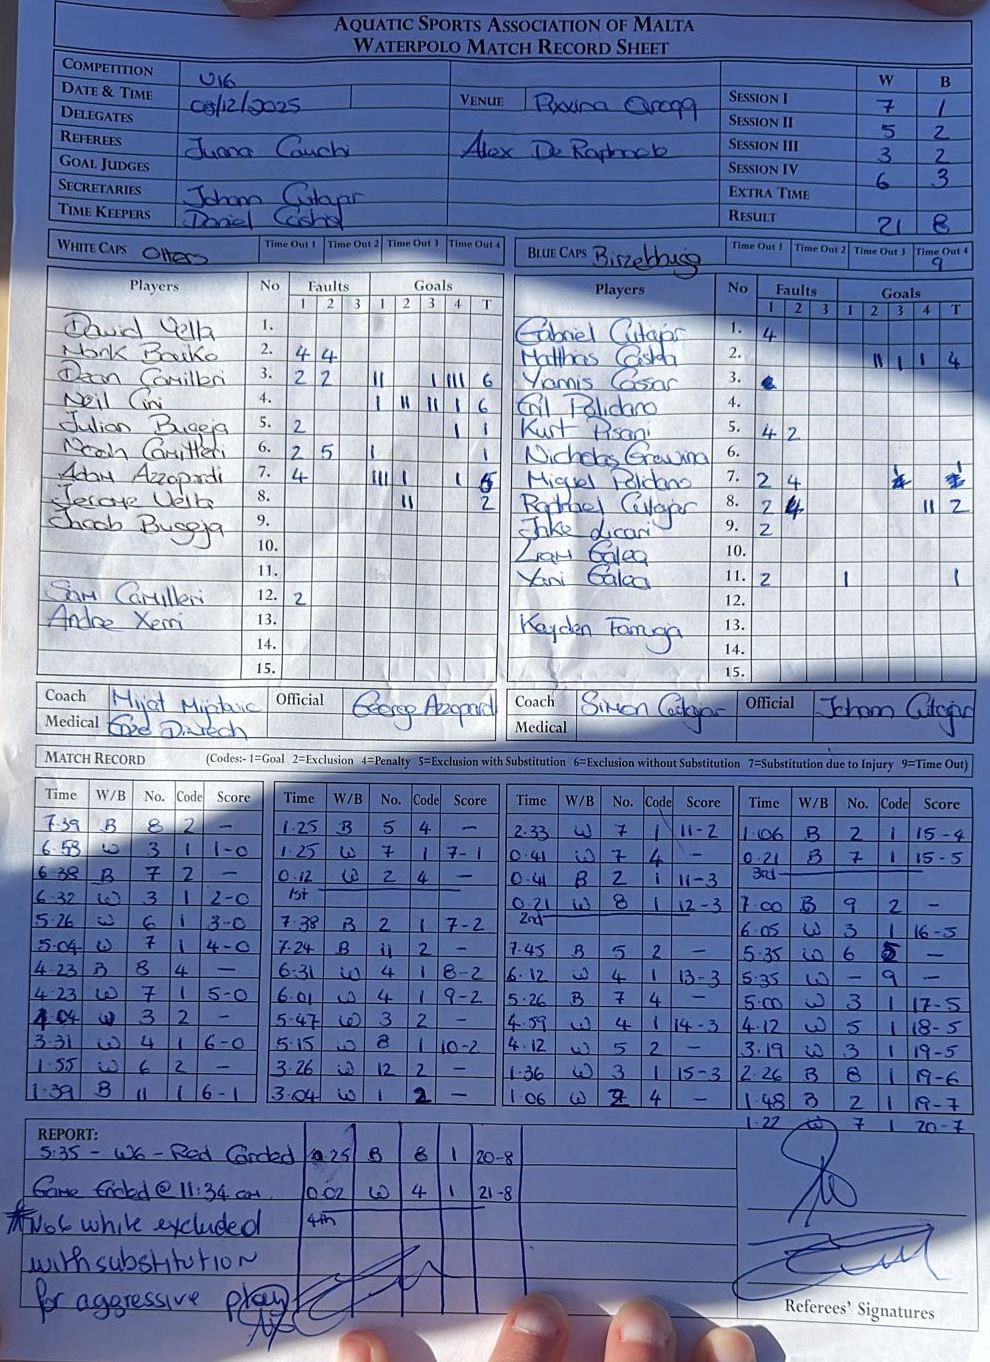 AQUATIC SPORTS ASSOCIATION OF MALTA
WATERPOLO MATCH RECORD SHEET
COMPETITION U16 W B
DATE & TIME 08/12/2025 VENUE SESSION I 7 1
DELEGATES SESSION II 5 2
REFEREES Alex De SESSION III 3 2
GOAL JUDGES SESSION IV 6 3
SECRETARIES Johann Cutajar EXTRA TIME
TIME KEEPERS Daniel RESULT 21 8
WHITE CAPS Otters Time Out 1 Time Out 2 Time Out 3 Time Out 4 BLUE CAPS Birzebbugg Time Out 1 Time Out 2 Time Out 3 Time Out 4 9
Players No Faults Goals Players No Faults Goals
1 2 3 1 2 3 4 T 1 2 3 1 2 3 4 T
David Vella 1. Gabriel Cutajar 1. 4
Mark 2. 4 4 Matthias Costa 2. II I I 4
Dean Camilleri 3. 2 2 II I III 6 Yiannis Cassar 3.
Neil Cini 4. I II II I 6 Polidano 4.
Julian Bugeja 5. 2 I I Kurt Pisani 5. 4 2
Neah Camilleri 6. 2 5 I 1 Nicholas Gravina 6.
Adam Azzopardi 7. 4 III I I 5 Miguel Polidano 7. 2 4 1
Jerome Vella 8. II 2 Raphael Cutajar 8. 2 4 II 2
Jacob Bugeja 9. Jake Licari 9. 2
10. Liam Galea 10.
11. Yani Galea 11. 2 I 1
Sam Camilleri 12. 2 12.
Andre Xerri 13. Kayden Farruga 13.
14. 14.
15. 15.
Coach Official George Azzopardi Coach Simon Cutajar Official Johann Cutajar
Medical Medical
MATCH RECORD (Codes:- 1=Goal 2=Exclusion 4=Penalty 5=Exclusion with Substitution 6=Exclusion without Substitution 7=Substitution due to Injury 9=Time Out)
Time W/B No. Code Score Time W/B No. Code Score Time W/B No. Code Score Time W/B No. Code Score
7.39 B 8 2 - 1.25 B 5 4 - 2.33 W 7 1 11-2 1.06 B 2 1 15-4
6.53 W 3 1 1-0 1.25 W 7 1 7-1 0.41 W 7 4 - 0.21 B 7 1 15-5
6.38 B 7 2 - 0.12 W 2 4 - 0.41 B 2 1 11-3 3rd
6.32 W 3 1 2-0 1st 0.21 W 8 1 12-3 7.00 B 9 2 -
5.26 W 6 1 3-0 7.38 B 2 1 7-2 2nd 6.05 W 3 1 16-5
5.04 W 7 1 4-0 7.24 B 11 2 - 7.45 B 5 2 - 5.35 W 6 5 -
4.23 B 8 4 - 6.31 W 4 1 8-2 6.12 W 4 1 13-3 5.35 W - 9 -
4.23 W 7 1 5-0 6.01 W 4 1 9-2 5.26 B 7 4 - 5.00 W 3 1 17-5
4.04 W 3 2 - 5.47 W 3 2 - 4.59 W 4 1 14-3 4.12 W 5 1 18-5
3.31 W 4 1 6-0 5.15 W 8 1 10-2 4.12 W 5 2 - 3.19 W 3 1 19-5
1.55 W 6 2 - 3.26 W 12 2 - 1.36 W 3 1 15-3 2.26 B 8 1 19-6
1.39 B 11 1 6-1 3.04 W 1 2 - 1.06 W 2 4 - 1.48 B 2 1 19-7
1.22 W 7 1 20-7
REPORT:
5:35 - W6 - Red Carded 0.25 B 8 1 20-8
Game Ended @ 11:34 am. 0.02 W 4 1 21-8
*No6 white excluded 4th
with substitution
for aggressive play
Referees' Signatures